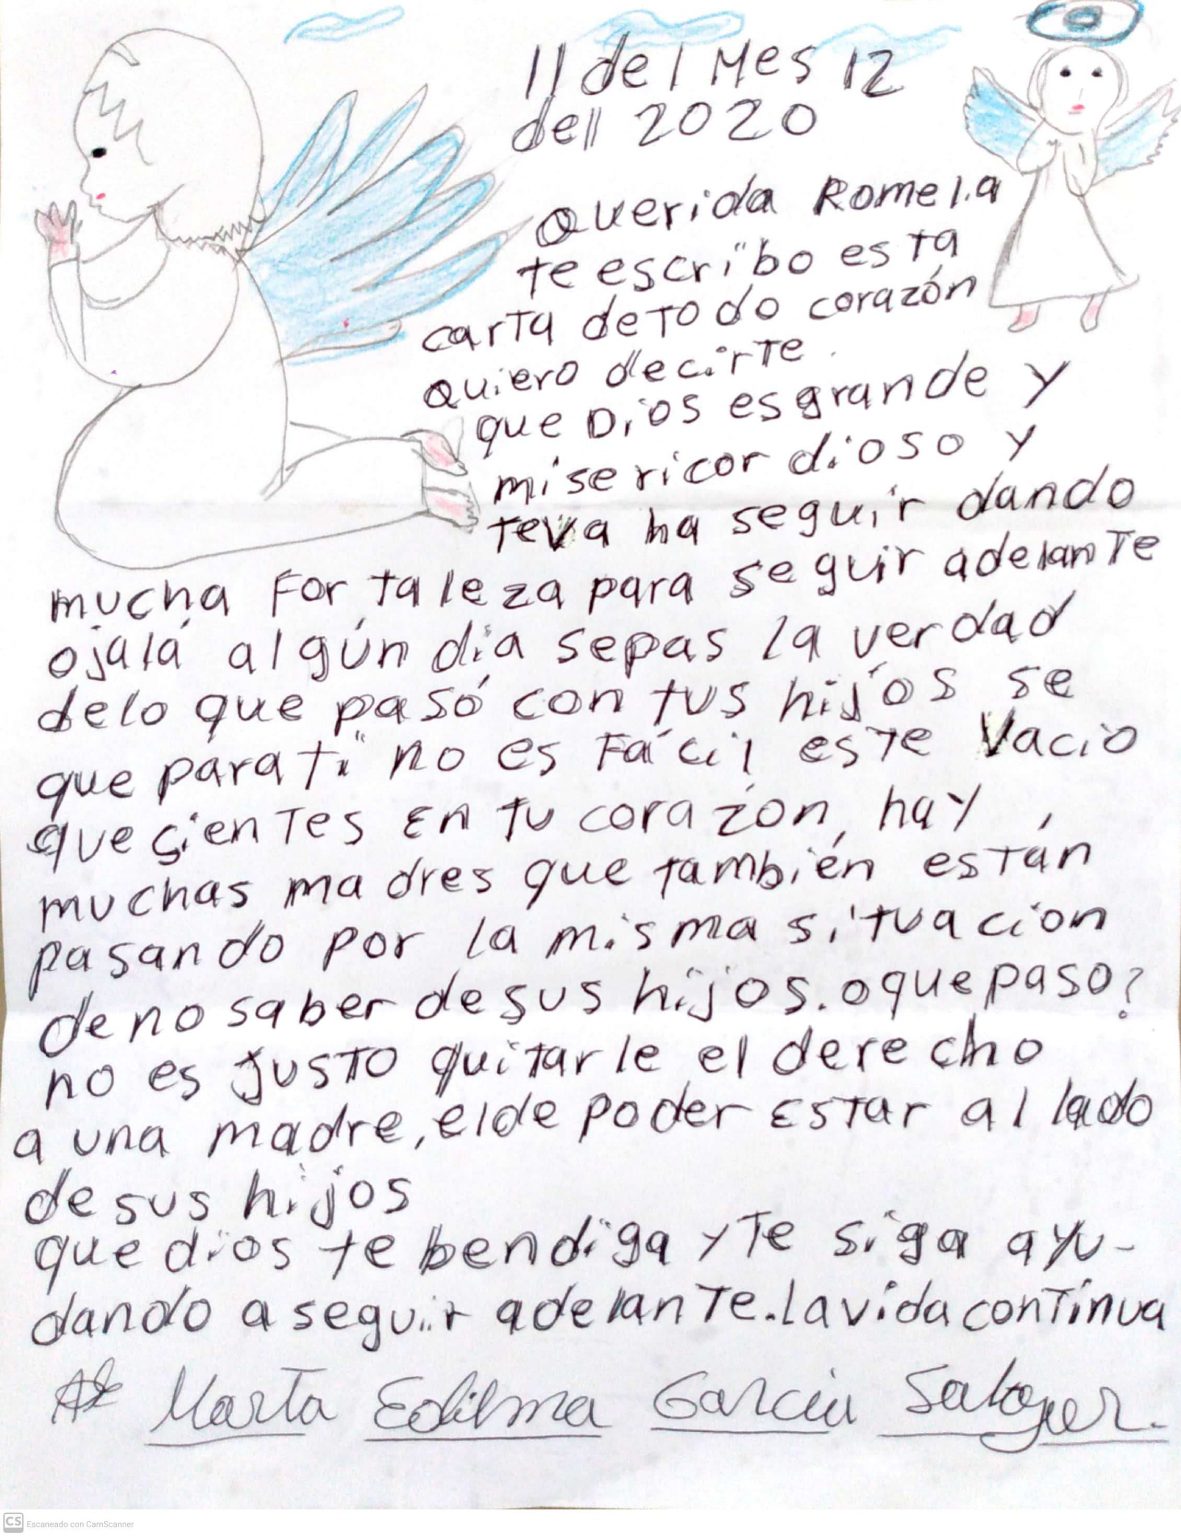 11 del Mes 12
dell 2020
Querida Romelia
te escribo esta
carta de todo corazón
quiero decirte.
que Dios es grande y
misericordioso y
teva ha seguir dando
mucha Fortaleza para seguir adelante
ojalá algún día sepas la verdad
delo que pasó con tus hijos se
que para ti no es Fácil este Vacio
que sientes En tu corazón, hay
muchas madres que también están
pasando por la misma situación
de no saber de sus hijos. o que paso?
no es justo quitarle el derecho
a una madre, el de poder Estar al lado
de sus hijos
que dios te bendiga y te siga ayu-
dando a seguir adelante. la vida continua
Marta Edilma Garcia Salazar.
CS Escaneado con CamScanner